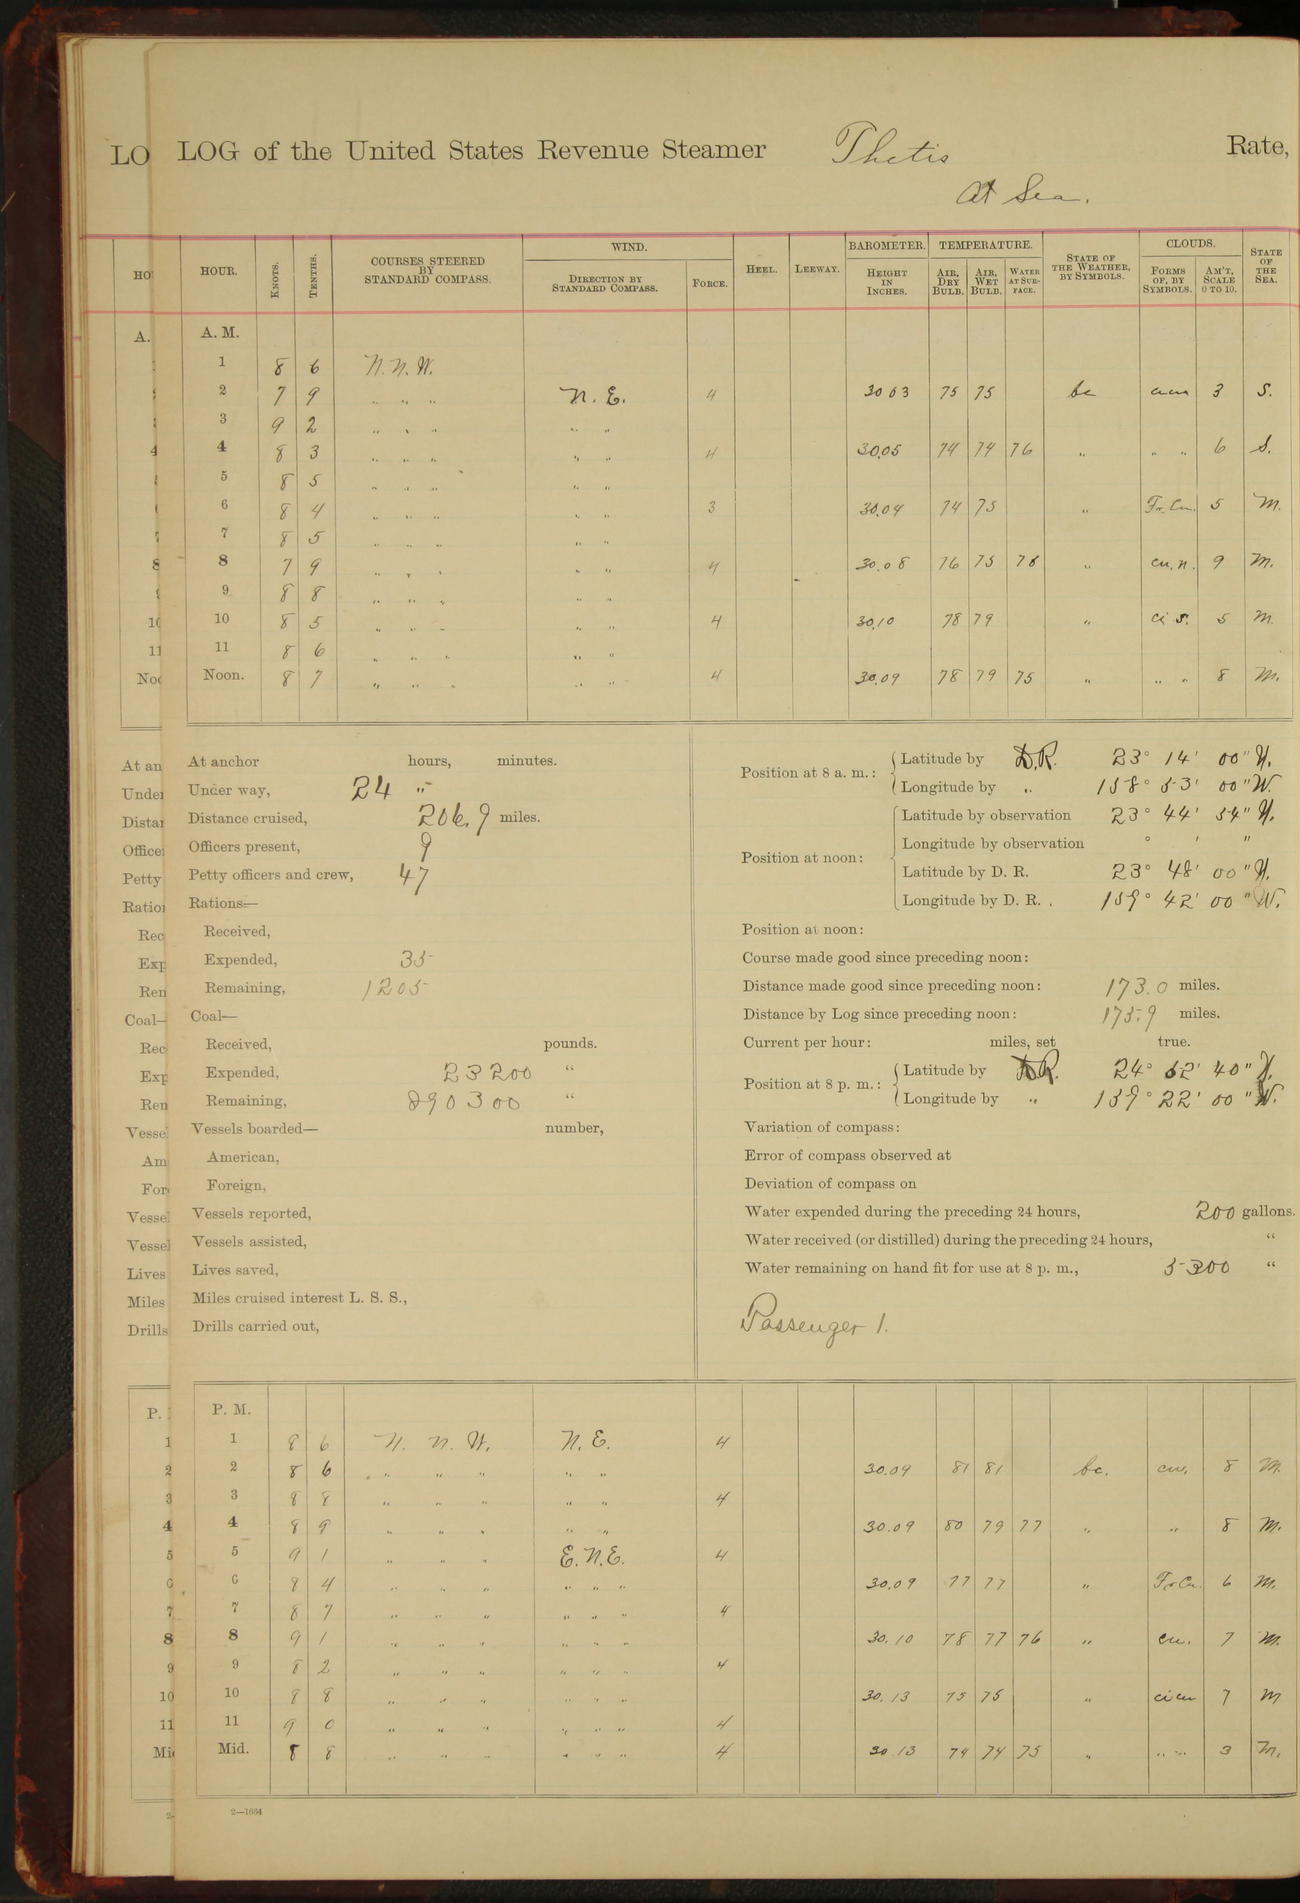 LO LOG of the United States Revenue Steamer Thetis Rate,
At Sea.
HOUR. KNOTS. TENTHS. COURSES STEERED BY STANDARD COMPASS. WIND. DIRECTION BY STANDARD COMPASS. FORCE. HEEL. LEEWAY. BAROMETER. HEIGHT IN INCHES. TEMPERATURE. AIR, DRY BULB. AIR, WET BULB. WATER AT SURFACE. STATE OF THE WEATHER, BY SYMBOLS. CLOUDS. FORMS OF, BY SYMBOLS. AM'T, SCALE 0 TO 10. STATE OF THE SEA.
A. M.
1 8 6 N. N. W.
2 7 9 " " " N. E. 4 30 03 75 75 bc cum 3 S.
3 9 2 " " " " "
4 8 3 " " " " " 4 30.05 74 74 76 " " " 6 S.
5 8 5 " " " " "
6 8 4 " " " " " 3 30.04 74 75 " Fr. Cu. 5 M.
7 8 5 " " " " "
8 7 9 " " " " " 4 30.08 76 75 76 " cu. n. 9 M.
9 8 8 " " " " "
10 8 5 " " " " " 4 30.10 78 79 " ci s. 5 M.
11 8 6 " " " " "
Noon. 8 7 " " " " " 4 30.09 78 79 75 " " " 8 M.
At anchor hours, minutes.
Under way, 24 "
Distance cruised, 206.9 miles.
Officers present, 9
Petty officers and crew, 47
Rations—
Received,
Expended, 35
Remaining, 1205
Coal—
Received, pounds.
Expended, 23200 "
Remaining, 290300 "
Vessels boarded— number,
American,
Foreign,
Vessels reported,
Vessels assisted,
Lives saved,
Miles cruised interest L. S. S.,
Drills carried out,
Position at 8 a. m.: Latitude by D.R. 23° 14' 00" N.
Longitude by " 158° 53' 00" W.
Position at noon: Latitude by observation 23° 44' 54" N.
Longitude by observation ° ' "
Latitude by D. R. 23° 48' 00" N.
Longitude by D. R. . 159° 42' 00" W.
Position at noon:
Course made good since preceding noon:
Distance made good since preceding noon: 173.0 miles.
Distance by Log since preceding noon: 175.9 miles.
Current per hour: miles, set true.
Position at 8 p. m.: Latitude by D.R. 24° 52' 40" N.
Longitude by " 159° 22' 00" W.
Variation of compass:
Error of compass observed at
Deviation of compass on
Water expended during the preceding 24 hours, 200 gallons.
Water received (or distilled) during the preceding 24 hours, "
Water remaining on hand fit for use at 8 p. m., 5300 "
Passenger 1.
P. M.
1 8 6 N. N. W. N. E. 4
2 8 6 " " " " " 30.09 81 81 bc. cu. 8 M.
3 8 8 " " " " " 4
4 8 9 " " " " " 30.09 80 79 77 " " 8 M.
5 9 1 " " " E. N. E. 4
6 8 4 " " " " " " 30.09 77 77 " Fr Cu. 6 M.
7 8 7 " " " " " " 4
8 9 1 " " " " " " 30.10 78 77 76 " cu. 7 M.
9 8 2 " " " " " " 4
10 8 8 " " " " " " 30.13 75 75 " ci cu 7 M
11 9 0 " " " " " " 4
Mid. 8 8 " " " " " " 4 30 13 74 74 75 " " " 3 M.
2—1664